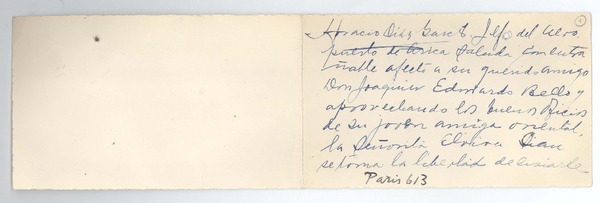 Horacio Díaz Garcé, Jefe del Aero
puerto de Arica saluda con entra
ñable afecto a su querido amigo
Don Joaquin Edwards Bello y
aprovechando los buenos oficios
de su joven amiga oriental
la Señorita Elvira
se toma la libertad de
Paris 613
1